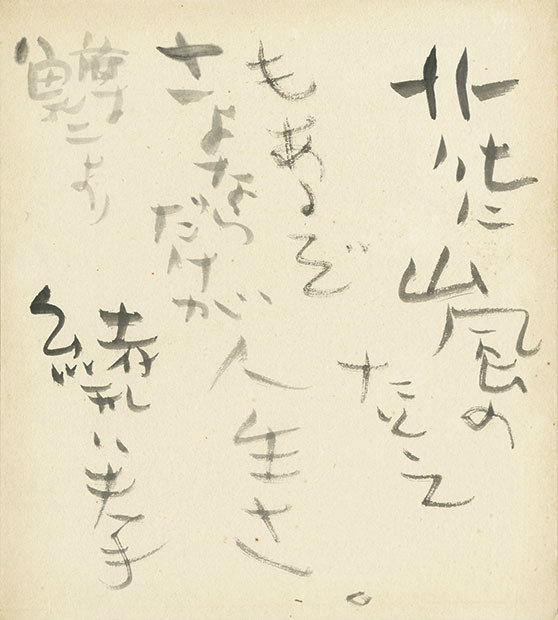 花に嵐の
たとえ
もあるぞ
さよなら
だけが
人生さ。
鱒二より